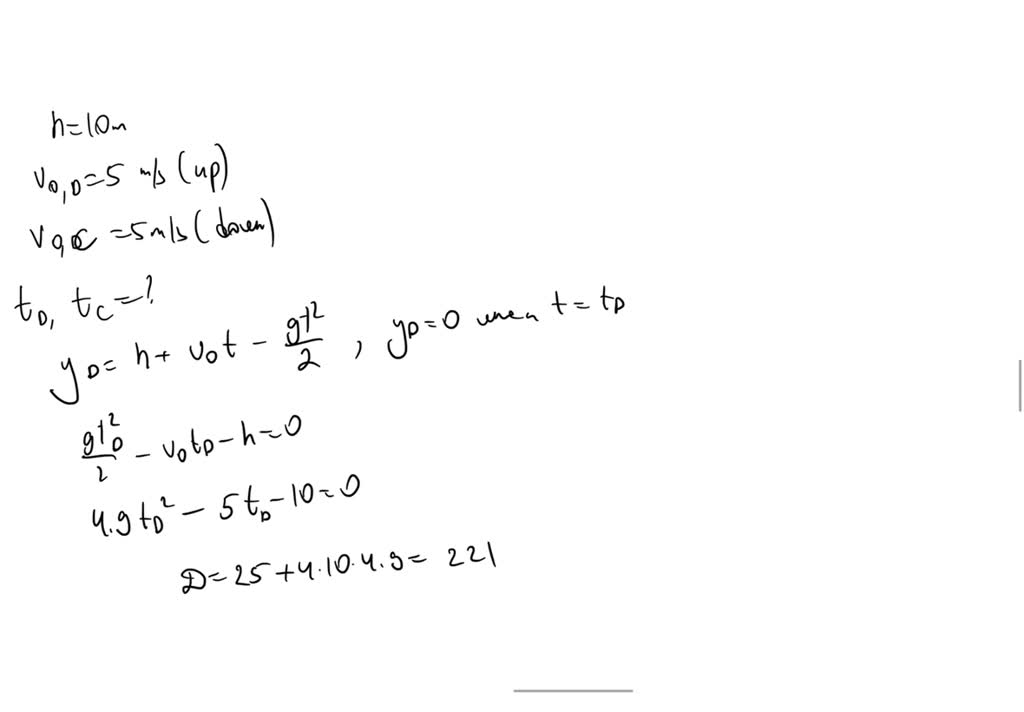 h=10m
v₀,D=5 m/s (up)
v₀,C=5m/s (down)
t_D, t_C=?
y_D= h+ v₀t - gt²/2 , y_D=0 when t= t_D
gt_D²/2 - v₀t_D-h=0
4.9t_D² - 5t_D-10=0
D=25+4·10·4.9= 221